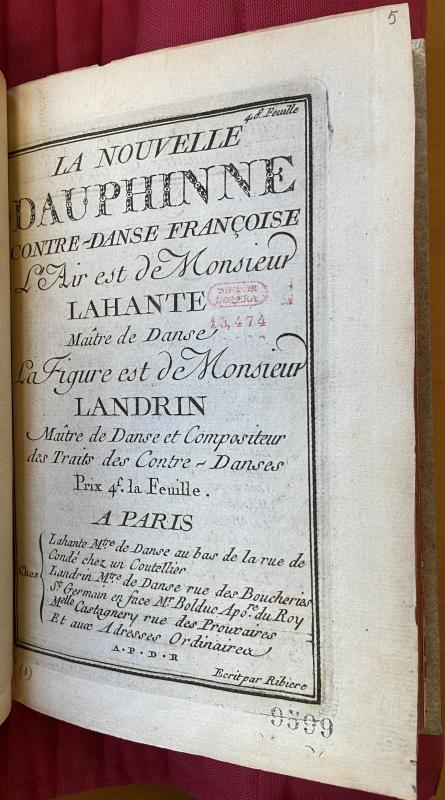 5
4.e Feuille
LA NOUVELLE
DAUPHINNE
CONTRE-DANSE FRANÇOISE
L'Air est de Monsieur
LAHANTE
13,474
Maître de Danse
La Figure est de Monsieur
LANDRIN
Maître de Danse et Compositeur
des Traits des Contre-Danses
Prix 4.f la Feuille.
A PARIS
Chez
Lahante M.tre de Danse au bas de la rue de
Condé chez un Coutellier
Landrin M.tre de Danse rue des Boucheries
S.t Germain en face M.r Bolduc Apo.re du Roy
M.elle Castagnery rue des Prouvaires
Et aux Adresses Ordinaires
A·P·D·R
Ecrit par Ribiere
(1)
9599